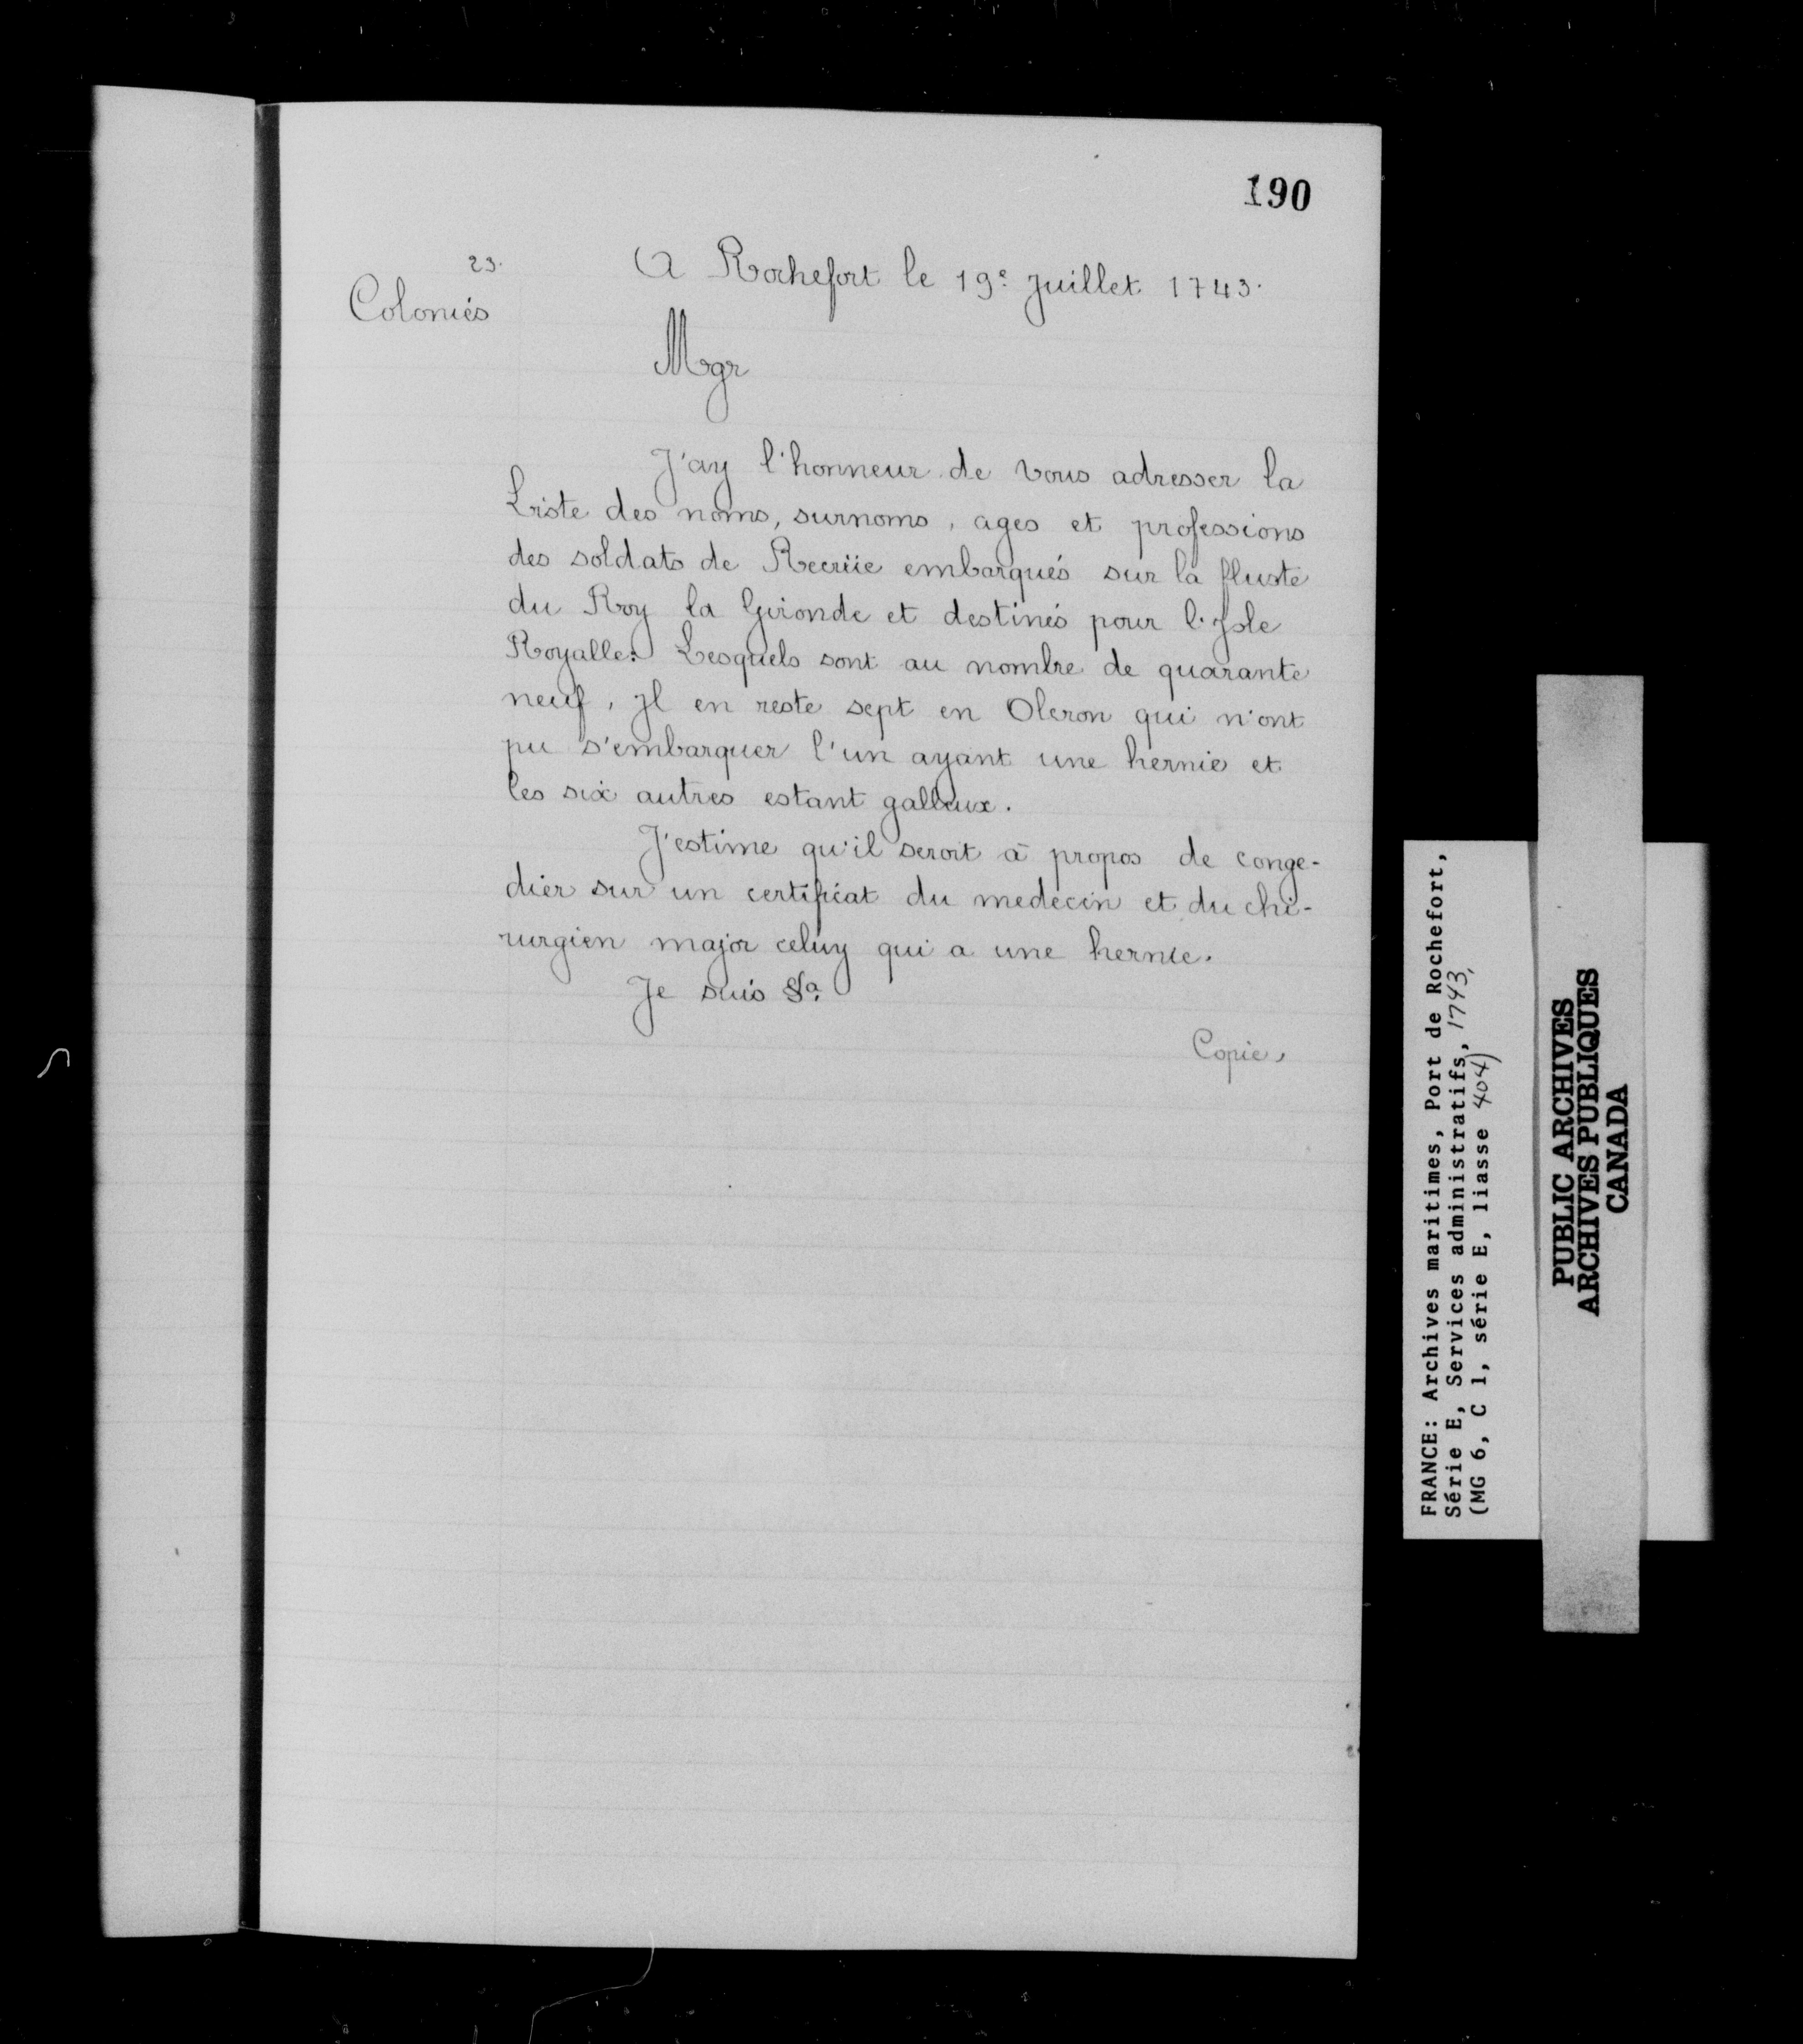 190
23.
Colonies
A Rochefort le 19e Juillet 1743.
Mgr
J'ay l'honneur de vous adresser la
Liste des noms, surnoms, ages et professions
des soldats de Recrüe embarqués sur la flluste
du Roy la Gironde et destinés pour l'Isle
Royalle. Lesquels sont au nombre de quarante
neuf, Il en reste sept en Oleron qui n'ont
pu s'embarquer l'un ayant une hernie et
les six autres estant galleux.
J'estime qu'il seroit à propos de conge-
dier sur un certificat du medecin et du chi-
rurgien major celuy qui a une hernie.
Je suis &a.
Copie.
FRANCE: Archives maritimes, Port de Rochefort,
Série E, Services administratifs, 1743,
(MG 6, C 1, série E, liasse 404)
PUBLIC ARCHIVES
ARCHIVES PUBLIQUES
CANADA